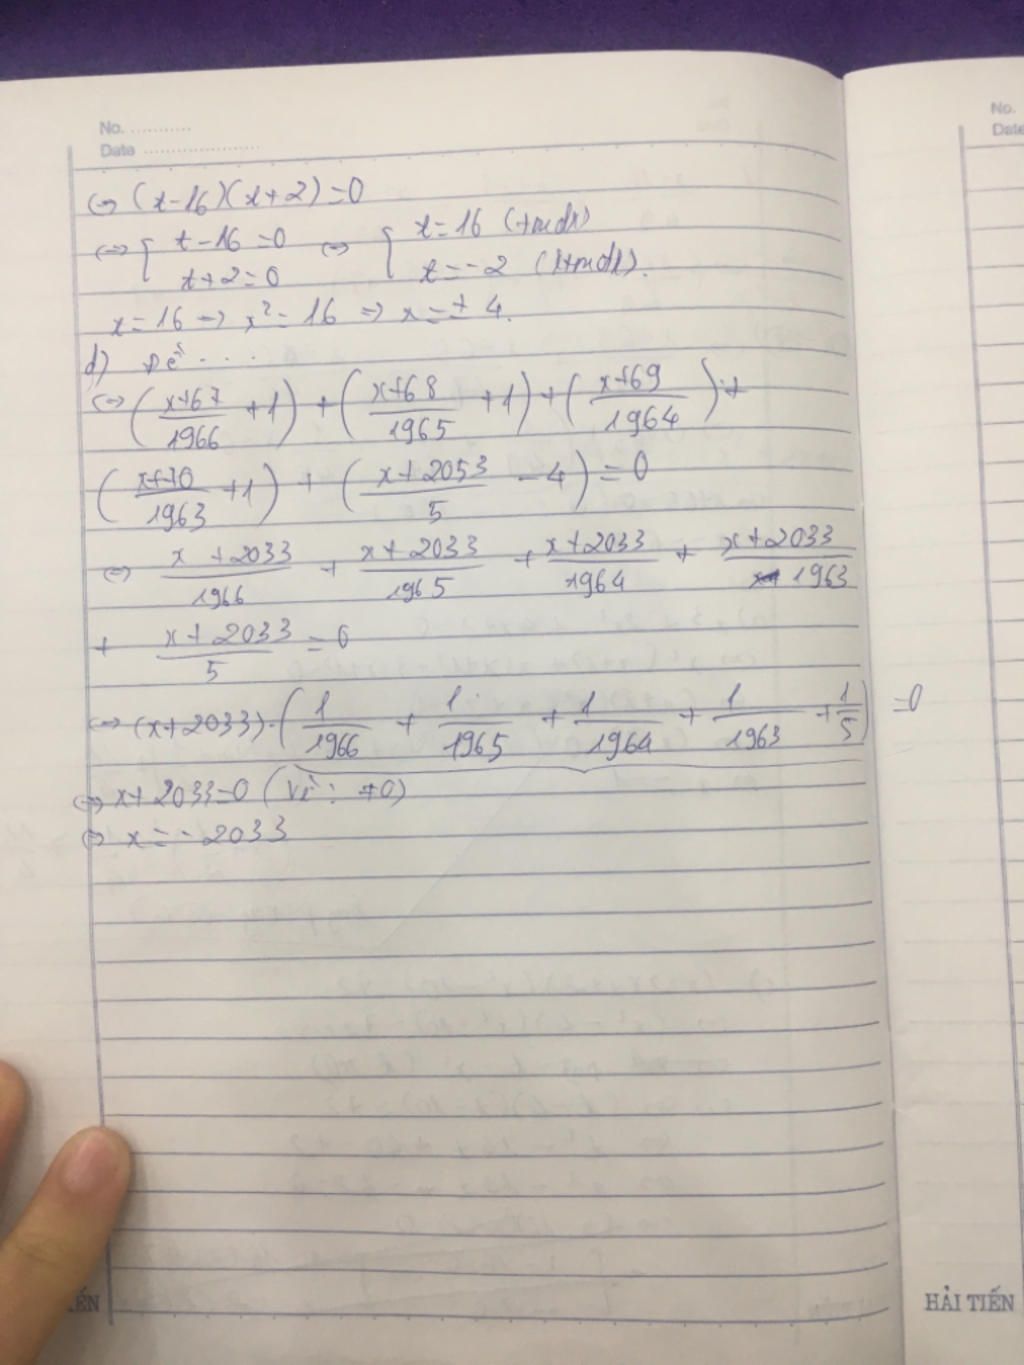 No. ...........
Date ....................
⇔ (t-16)(t+2)=0
⇔ [ t-16=0 ⇔ [ t=16 (tmđk)
t+2=0 t=-2 (ktmđk).
t=16 ⇒ x²=16 ⇒ x=± 4.
d) Đề ....
⇔ (x+67/1966 +1) + (x+68/1965 +1) + (x+69/1964) +
(x+70/1963 +1) + (x+2053/5 - 4) = 0
⇔ x+2033/1966 + x+2033/1965 + x+2033/1964 + x+2033/1963
+ x+2033/5 = 0
⇔ (x+2033).(1/1966 + 1/1965 + 1/1964 + 1/1963 + 1/5) =0
⇔ x+2033=0 (Vì: ≠0)
⇔ x=-2033
No.
Date
HẢI TIẾN